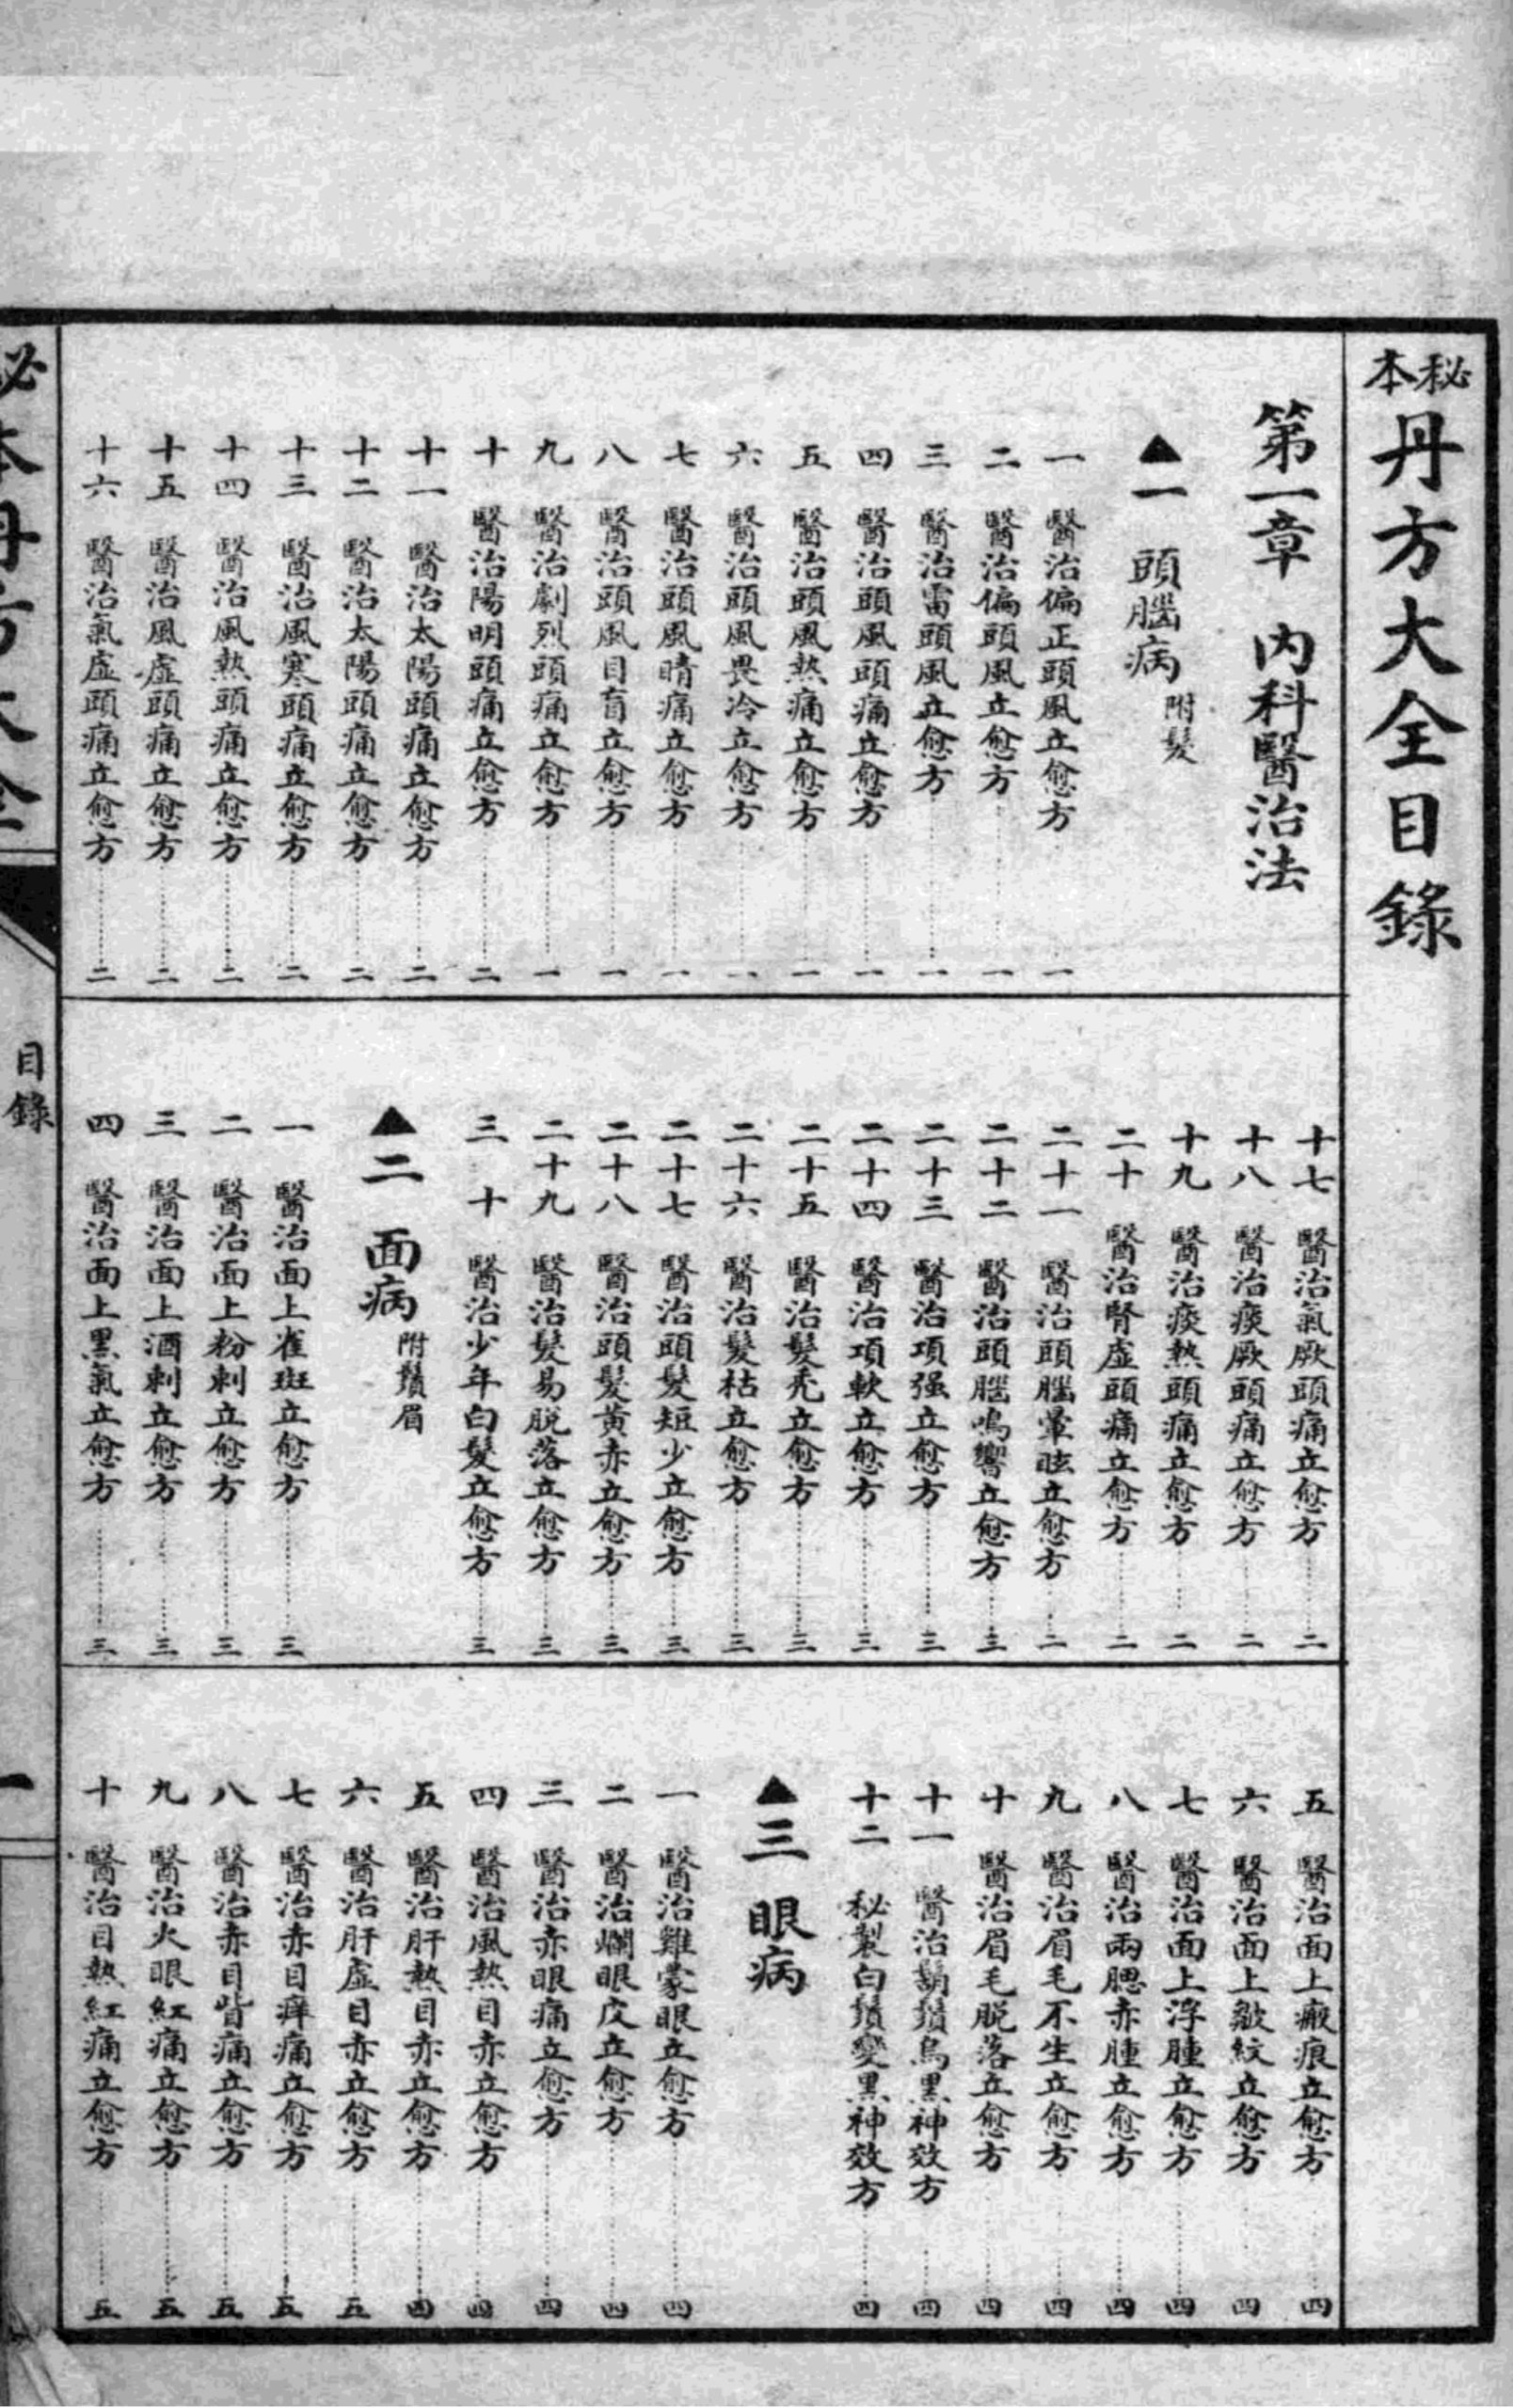 秘本丹方大全目錄
第一章 內科醫治法
▲一 頭腦病 附髮
一 醫治偏正頭風立愈方 一
二 醫治偏頭風立愈方 一
三 醫治雷頭風立愈方 一
四 醫治頭風頭痛立愈方 一
五 醫治頭風熱痛立愈方 一
六 醫治頭風畏冷立愈方 一
七 醫治頭風晴痛立愈方 一
八 醫治頭風目盲立愈方 一
九 醫治劇烈頭痛立愈方 一
十 醫治陽明頭痛立愈方 二
十一 醫治太陽頭痛立愈方 二
十二 醫治太陽頭痛立愈方 二
十三 醫治風寒頭痛立愈方 二
十四 醫治風熱頭痛立愈方 二
十五 醫治風虛頭痛立愈方 二
十六 醫治氣虛頭痛立愈方 二
十七 醫治氣厥頭痛立愈方 二
十八 醫治痰厥頭痛立愈方 二
十九 醫治痰熱頭痛立愈方 二
二十 醫治腎虛頭痛立愈方 二
二十一 醫治頭腦暈眩立愈方 二
二十二 醫治頭腦鳴響立愈方 三
二十三 醫治項强立愈方 三
二十四 醫治項軟立愈方 三
二十五 醫治髮禿立愈方 三
二十六 醫治髮枯立愈方 三
二十七 醫治頭髮短少立愈方 三
二十八 醫治頭髮黃赤立愈方 三
二十九 醫治髮易脫落立愈方 三
三十 醫治少年白髮立愈方 三
▲二 面病 附鬚眉
一 醫治面上雀斑立愈方 三
二 醫治面上粉刺立愈方 三
三 醫治面上酒刺立愈方 三
四 醫治面上黑氣立愈方 三
五 醫治面上瘢痕立愈方 四
六 醫治面上皺紋立愈方 四
七 醫治面上浮腫立愈方 四
八 醫治兩腮赤腫立愈方 四
九 醫治眉毛不生立愈方 四
十 醫治眉毛脫落立愈方 四
十一 醫治鬍鬚烏黑神效方 四
十二 秘製白鬚變黑神效方 四
▲三 眼病
一 醫治雞蒙眼立愈方 四
二 醫治爛眼皮立愈方 四
三 醫治赤眼痛立愈方 四
四 醫治風熱目赤立愈方 四
五 醫治肝熱目赤立愈方 四
六 醫治肝虛目赤立愈方 五
七 醫治赤目痒痛立愈方 五
八 醫治赤目眥痛立愈方 五
九 醫治火眼紅痛立愈方 五
十 醫治目熱紅痛立愈方 五
秘本丹方大全
目錄
一